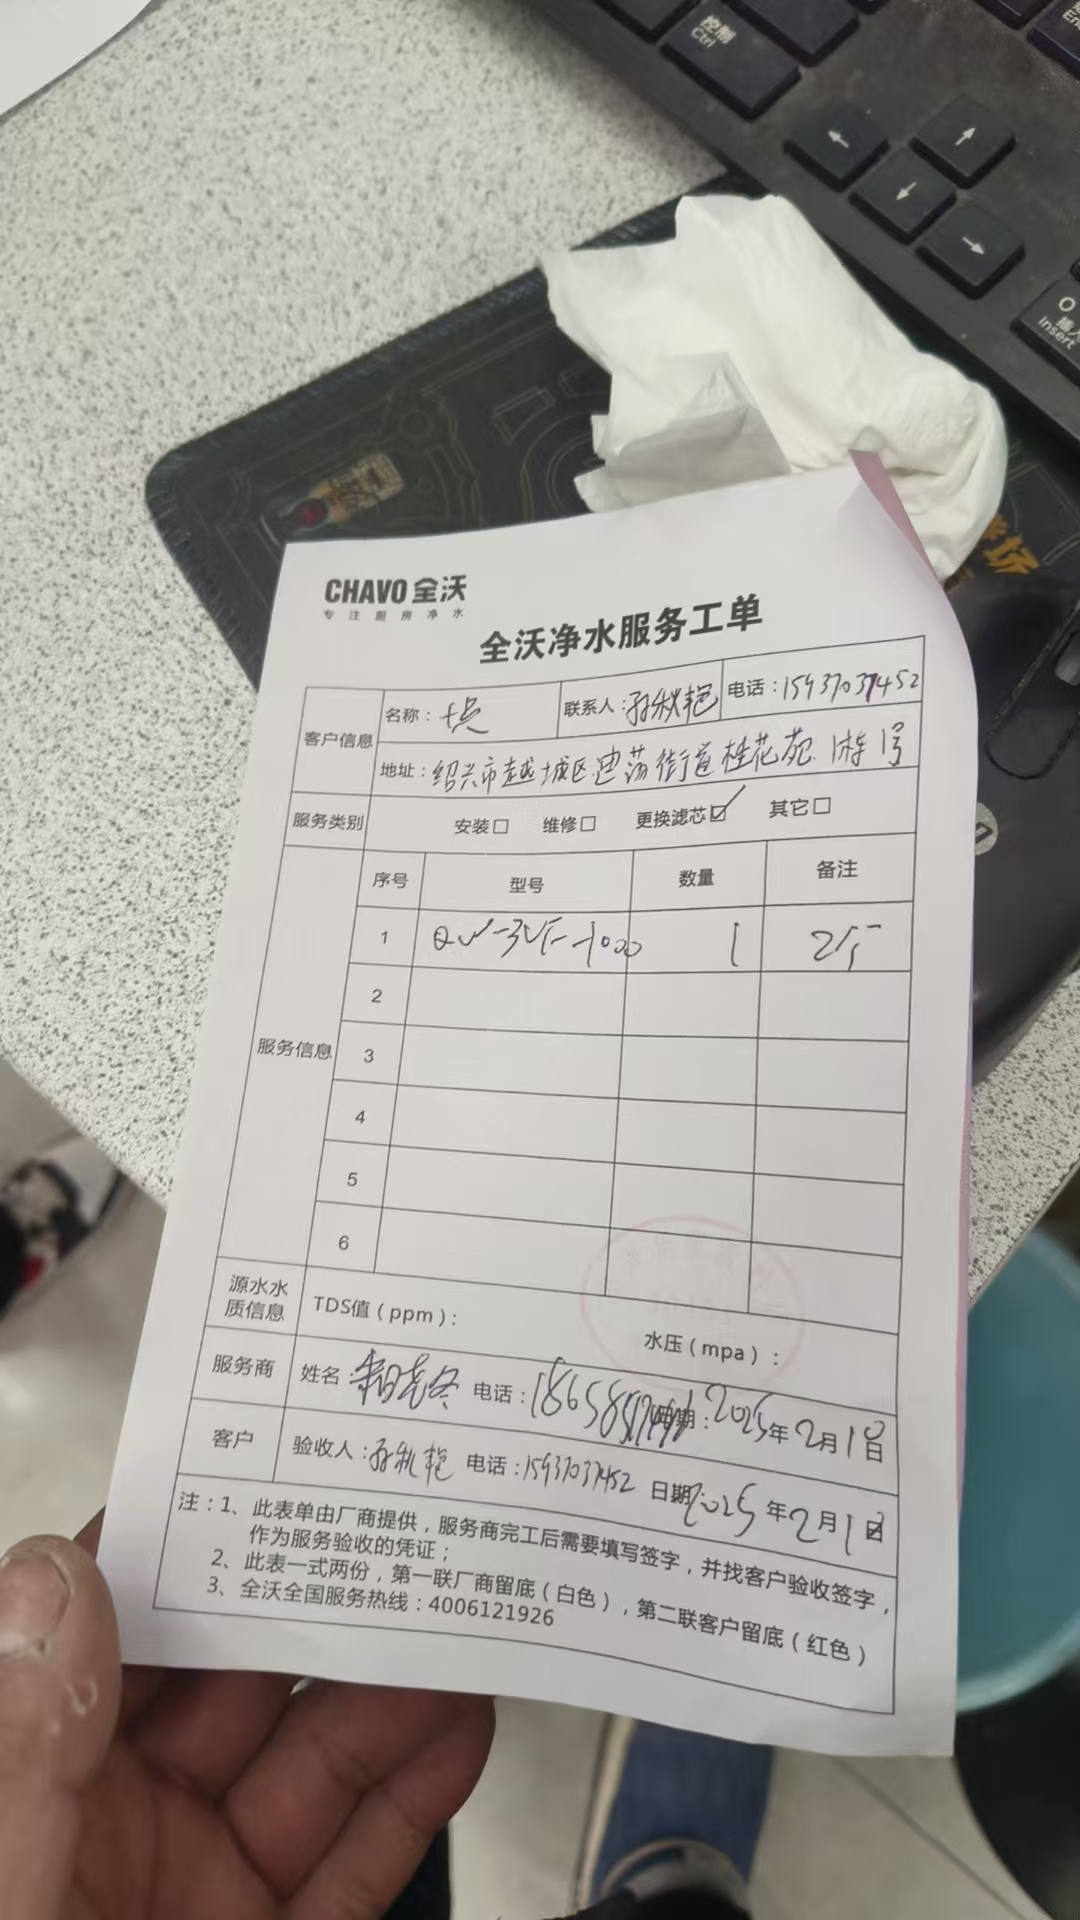 控制
Ctrl
插入
Insert
CHAVO 全沃
专注厨房净水
全沃净水服务工单
客户信息
名称：一点
联系人：孙秋艳
电话：15937037452
地址：绍兴市越城区迪荡街道桂花苑 1栋1号
服务类别
安装□ 维修□ 更换滤芯☑ 其它□
服务信息
序号 型号 数量 备注
1 1
2
3
4
5
6
源水水质信息
TDS值（ppm）：
水压（mpa）：
服务商
姓名： 电话： 2025年2月1日
客户
验收人：孙秋艳 电话：15937037452 日期：2025年2月1日
注：1、此表单由厂商提供，服务商完工后需要填写签字，并找客户验收签字，
作为服务验收的凭证；
2、此表一式两份，第一联厂商留底（白色），第二联客户留底（红色）
3、全沃全国服务热线：4006121926